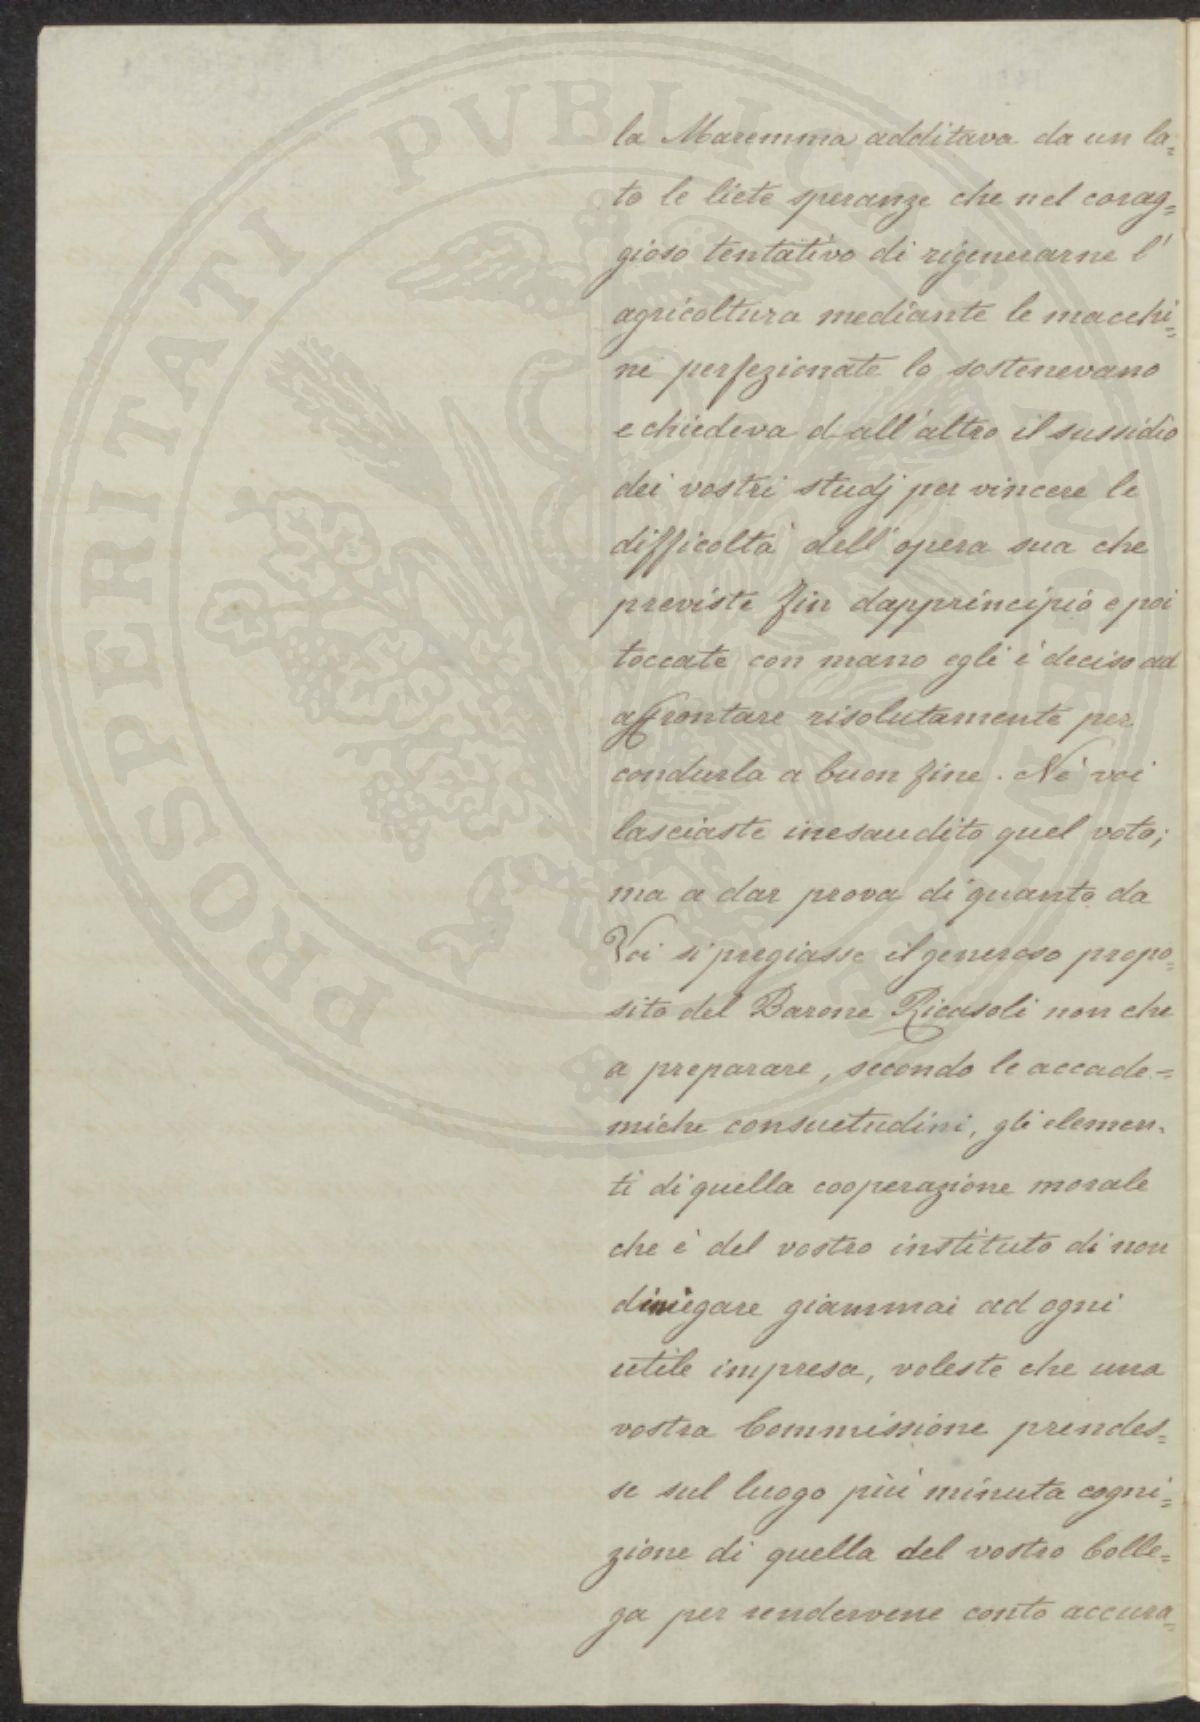 la Maremma additava da un la=
to le liete speranze che nel corag=
gioso tentativo di rigenerarne l'
agricoltura mediante le macchi=
ne perfezionate lo sostenevano
e chiedeva dall'altro il sussidio
dei vostri studj per vincere le
difficoltà dell'opera sua che
previste fin dapprincipio e poi
toccate con mano egli è deciso ad
affrontare risolutamente per
condurla a buon fine. Nè voi
lasciaste inesaudito quel voto;
ma a dar prova di quanto da
Voi si pregiasse il generoso propo=
sito del Barone Ricasoli non che
a preparare, secondo le accade=
miche consuetudini, gli elemen=
ti di quella cooperazione morale
che è del vostro instituto di non
diniegare giammai ad ogni
utile impresa, voleste che una
vostra Commissione prendes=
se sul luogo più minuta cogni=
zione di quella del vostro Colle=
ga per rendervene conto accura=
PROSPERITATI PVBLICAE AVGENDAE